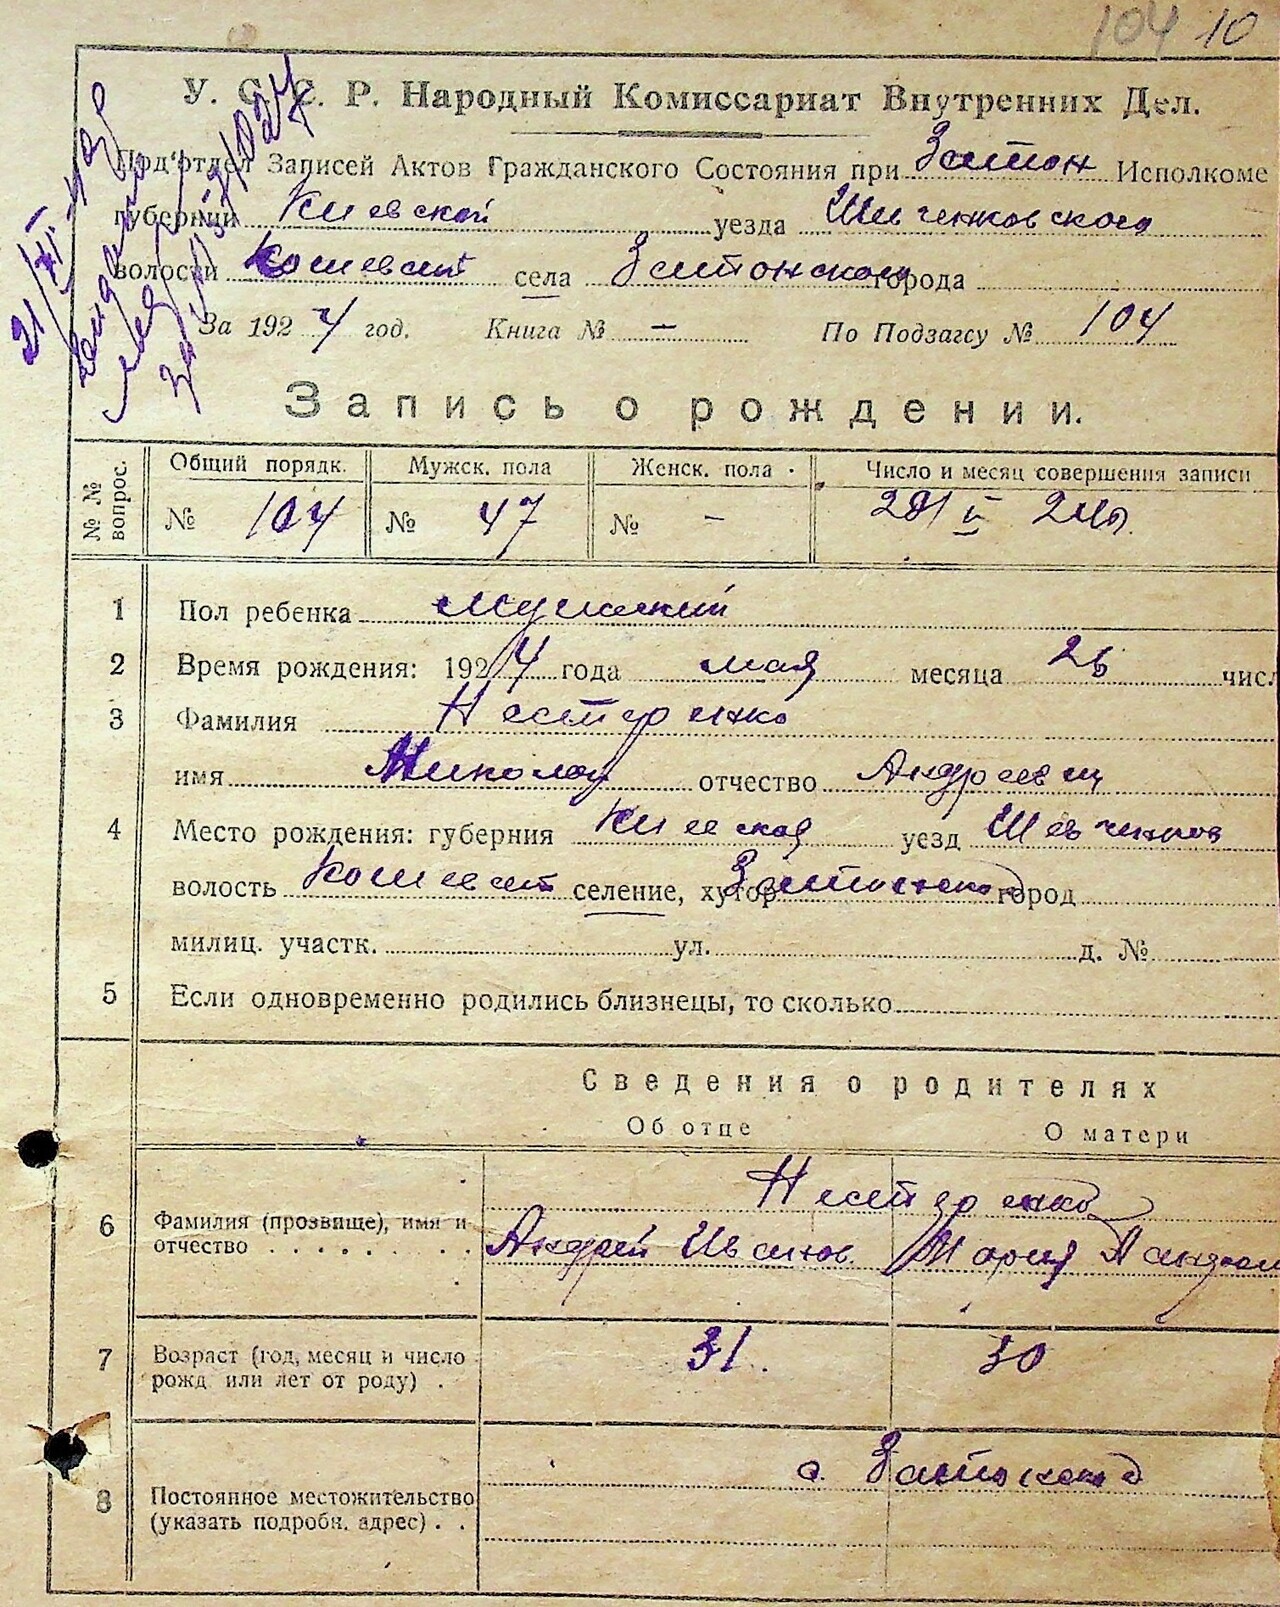 104 10
У. С. С. Р. Народный Комиссариат Внутренних Дел.
Под'отдел Записей Актов Гражданского Состояния при Затон Исполкоме
губернии Киевской уезда Шевченковского
волости села Затонского города
За 1924 год. Книга № — По Подзагсу № 104
Запись о рождении.
№ № вопрос. Общий порядк. Мужск. пола Женск. пола Число и месяц совершения записи
№ 104 № 47 № — 28/V 24
1 Пол ребенка мужский
2 Время рождения: 1924 года мая месяца 26 числ
3 Фамилия Нестеренко
имя Николай отчество Андреевич
4 Место рождения: губерния Киевская уезд Шевченков
волость селение, хутор город
милиц. участк. ул. д. №
5 Если одновременно родились близнецы, то сколько
Сведения о родителях
Об отце О матери
Нестеренко
6 Фамилия (прозвище), имя и
отчество . . . . . . . . . Андрей Иванов. Мария
7 Возраст (год, месяц и число
рожд. или лет от роду) . 31. 30
с.
8 Постоянное местожительство
(указать подробн. адрес) . .